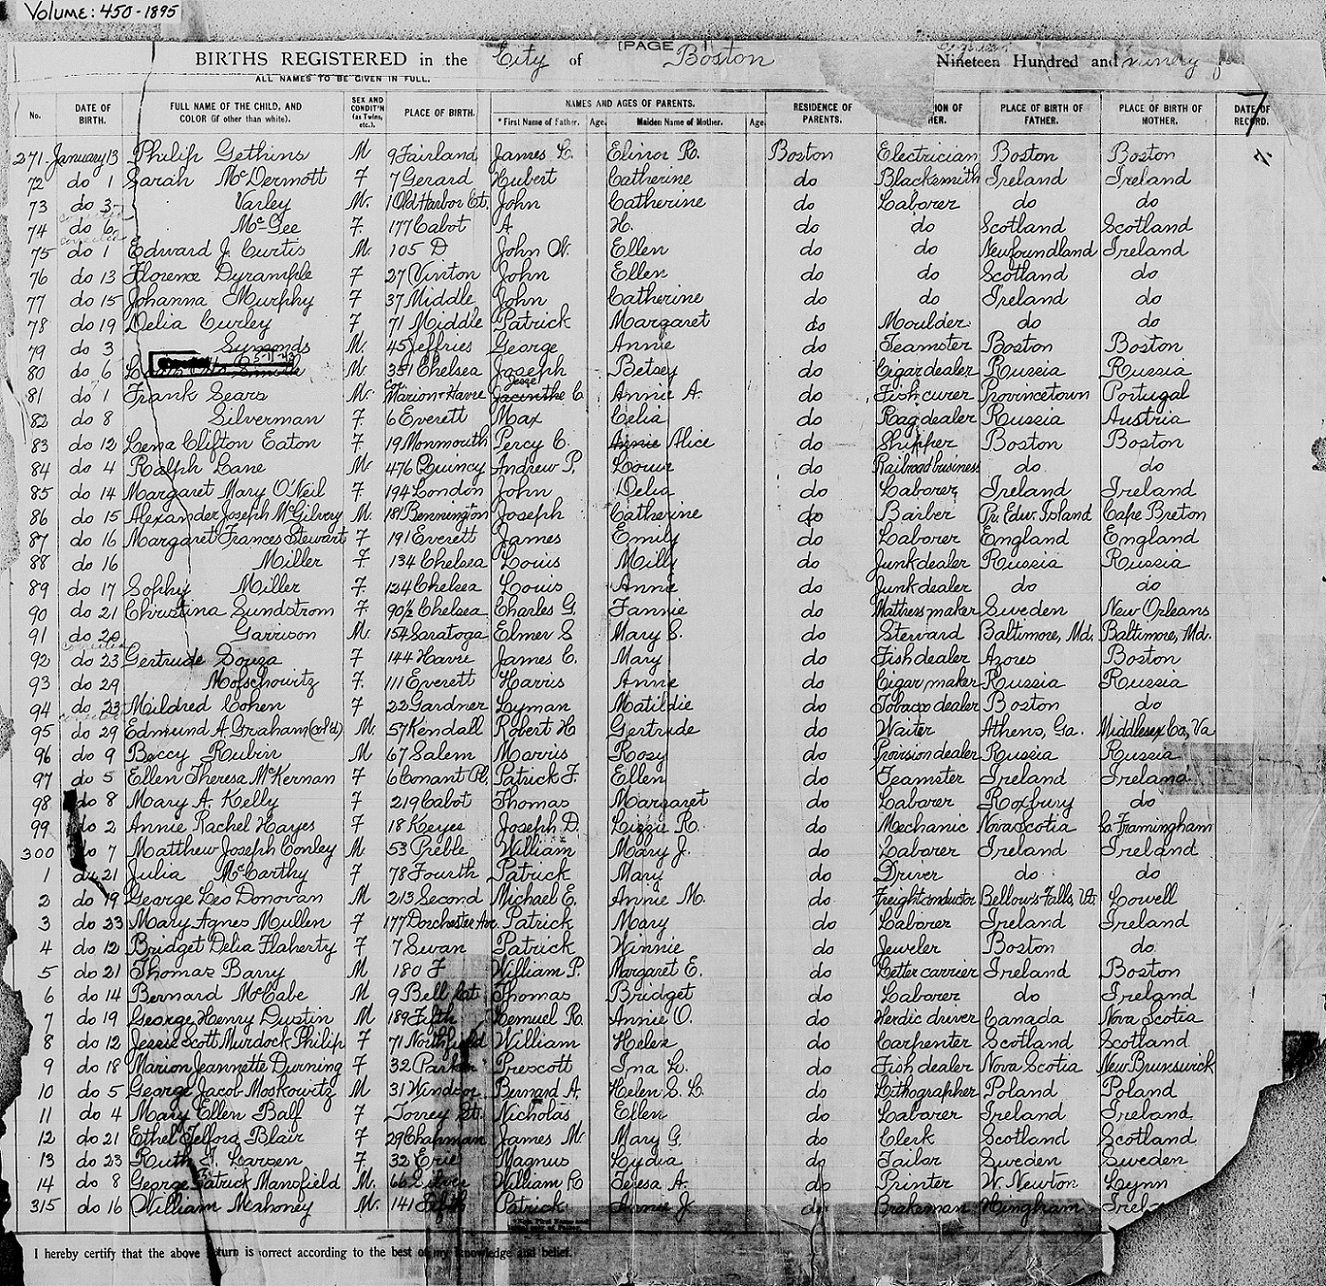 Volume: 450-1895
[PAGE 1]
BIRTHS REGISTERED in the City of Boston Nineteen Hundred and ninety
ALL NAMES TO BE GIVEN IN FULL.
No. DATE OF BIRTH. FULL NAME OF THE CHILD, AND COLOR (if other than white). SEX AND CONDIT'N (as Twins, etc.). PLACE OF BIRTH. NAMES AND AGES OF PARENTS. RESIDENCE OF PARENTS. PLACE OF BIRTH OF FATHER. PLACE OF BIRTH OF MOTHER. DATE OF RECORD.
* First Name of Father. Age. Maiden Name of Mother. Age.
271 January 13 Philip Gethins M 9 Fairland James L. Elinor R. Boston Electrician Boston Boston
72 do 1 Sarah McDermott F 7 Gerard Hubert Catherine do Blacksmith Ireland Ireland
73 do 3 Varley M. 1 Old Harbor Ct. John Catherine do Laborer do do
74 do 6 McGee F. 177 Cabot A H. do do Scotland Scotland
75 do 1 Edward J. Curtis M. 105 D John W. Ellen do do Newfoundland Ireland
76 do 13 Florence Dyrample F 27 Vinton John Ellen do do Scotland do
77 do 15 Johanna Murphy F 37 Middle John Catherine do do Ireland do
78 do 19 Delia Curley F 71 Middle Patrick Margaret do Moulder do do
79 do 3 Symonds M. 45 Jeffries George Annie do Teamster Boston Boston
80 do 6 M. 351 Chelsea Joseph Betsey do Cigar dealer Russia Russia
81 do 1 Frank Sears M. Cor Marion & Havre Jesse C. Annie A. do Fish curer Provincetown Portugal
82 do 8 Silverman F. 6 Everett Max Celia do Rag dealer Russia Austria
83 do 12 Lena Clifton Eaton F. 19 Monmouth Percy C. Annie Alice do Shipper Boston Boston
84 do 4 Ralph Lane M. 476 Quincy Andrew P. do Railroad business do do
85 do 14 Margaret Mary O'Neil F. 194 London John Delia do Laborer Ireland Ireland
86 do 15 Alexander Joseph McGilvery M. 181 Bennington Joseph Catherine do Barber Pr. Edw. Island Cape Breton
87 do 16 Margaret Frances Stewart F 191 Everett James Emily do Laborer England England
88 do 16 Miller F. 134 Chelsea Louis Milly do Junk dealer Russia Russia
89 do 17 Sophy Miller F 124 Chelsea Louis Annie do Junk dealer do do
90 do 21 Christina Sundstrom F. 90½ Chelsea Charles G. Fannie do Mattress maker Sweden New Orleans
91 do 20 Garrison M. 154 Saratoga Elmer S Mary S. do Steward Baltimore, Md. Baltimore, Md.
92 do 23 Gertrude Souza F 144 Havre James C. Mary do Fish dealer Azores Boston
93 do 29 Mofschowitz F. 111 Everett Harris Annie do Cigar maker Russia Russia
94 do 23 Mildred Cohen F 22 Gardner Lyman Matildie do Tobacco dealer Boston do
95 do 29 Edmund A. Graham (col'd) M. 57 Kendall Robert H Gertrude do Waiter Athens, Ga. Middlesex Co, Va
96 do 9 Beccy Rubin M 67 Salem Morris Rosy do Provision dealer Russia Russia
97 do 5 Ellen Theresa McKernan F 6 Conant Pl. Patrick F. Ellen do Teamster Ireland Ireland
98 do 8 Mary A. Kelly F 219 Cabot Thomas Margaret do Laborer Roxbury do
99 do 2 Annie Rachel Hayes F 18 Keyes Joseph D. Lizzie R. do Mechanic Nova Scotia So Framingham
300 do 7 Matthew Joseph Conley M 53 Preble William Mary J. do Laborer Ireland Ireland
1 do 21 Julia McCarthy F 78 Fourth Patrick Mary do Driver do do
2 do 19 George Leo Donovan M 213 Second Michael E. Annie M. do Freight conductor Bellow's Falls, Vt. Lowell
3 do 23 Mary Agnes Mullen F 177 Dorchester Ave. Patrick Mary do Laborer Ireland Ireland
4 do 12 Bridget Delia Flaherty F 7 Swan Patrick Winnie do Jeweler Boston do
5 do 21 Thomas Barry M 180 F William P. Margaret E. do Letter carrier Ireland Boston
6 do 14 Bernard McCabe M 9 Bell Thomas Bridget do Laborer do Ireland
7 do 19 George Henry Dustin M 189 Fifth Lemuel R. Annie O. do Herdic driver Canada Nova Scotia
8 do 12 Jessie Scott Murdock Philip F 71 Northfield William Helen do Carpenter Scotland Scotland
9 do 18 Marion Jeannette Durning F 32 Parker Prescott Ina L. do Fish dealer Nova Scotia New Brunswick
10 do 5 George Jacob Moskowitz M 31 Windsor Bernard A. Helen S. L. do Lithographer Poland Poland
11 do 4 Mary Ellen Balf F Torrey St. Nicholas Ellen do Laborer Ireland Ireland
12 do 21 Ethel Telford Blair F 29 Chapman James M Mary G. do Clerk Scotland Scotland
13 do 23 Ruth Larsen F 32 Erie Magnus Lydia do Tailor Sweden Sweden
14 do 8 George Patrick Mansfield M. 66 Silver William R Teresa A. do Printer W. Newton Lynn
315 do 16 William Mahoney M. 141 Fifth Patrick Annie J. do Brakeman Hingham
I hereby certify that the above return is correct according to the best of my knowledge and belief.